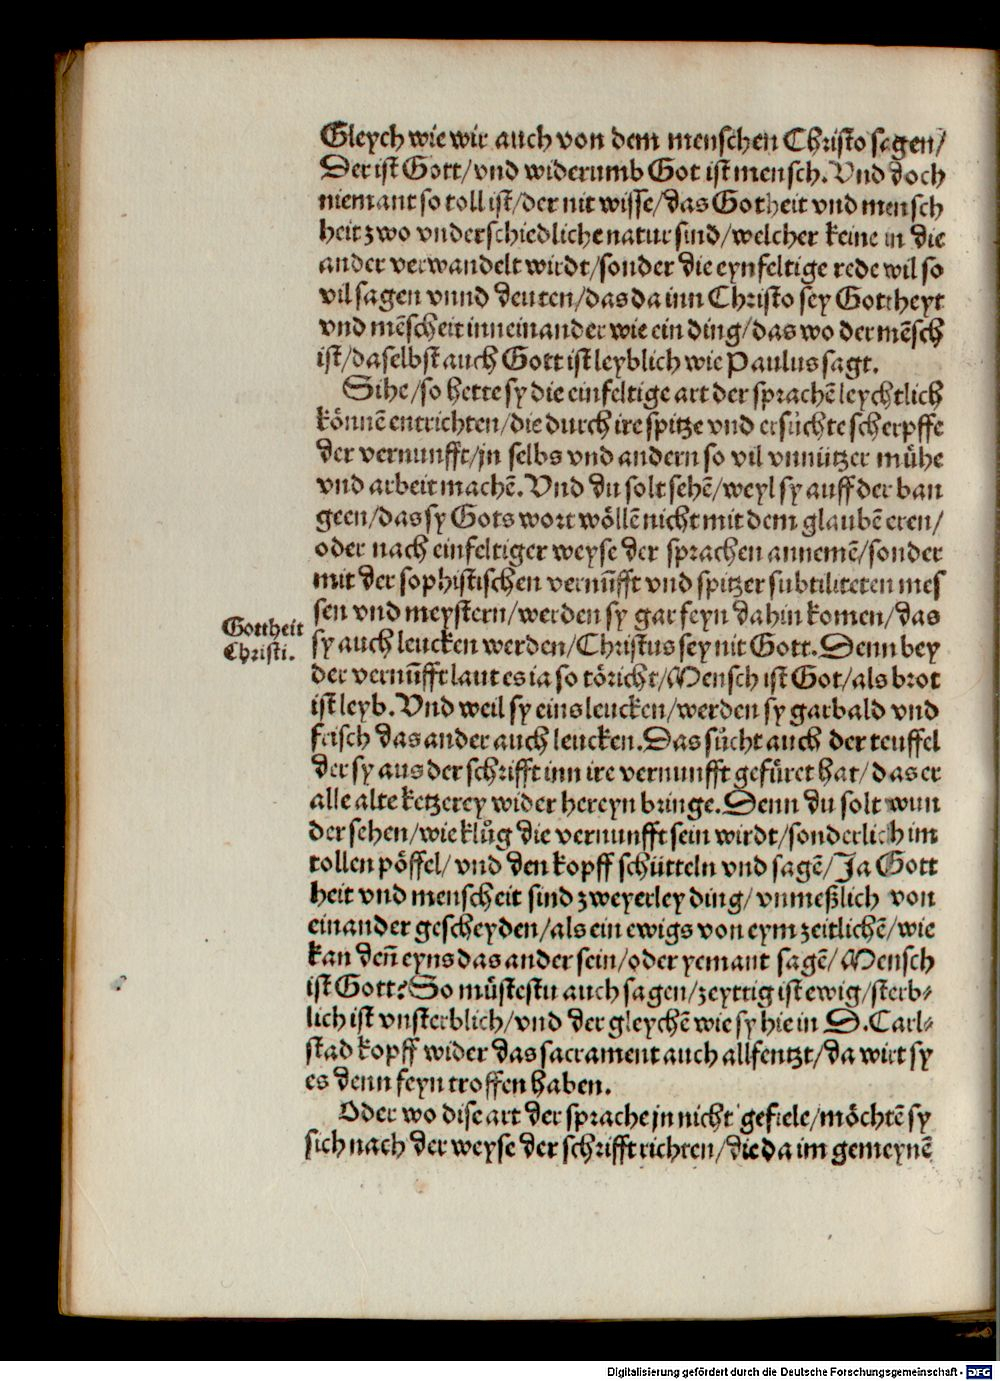 Gleych wie wir auch von dem menschen Christo sagen/
Der ist Gott/ vnd widerumb Got ist mensch. Vnd doch
niemant so toll ist/ der nit wisse/ das Gotheit vnd mensch
heit zwo vnderschiedliche natur sind/ welcher keine in die
ander verwandelt wirdt/ sonder die eynfeltige rede wil so
vil sagen vnnd deuten/ das da inn Christo sey Gottheyt
vnd mēscheit inn einander wie ein ding/ das wo der mēsch
ist/ daselbst auch Gott ist leyblich wie Paulus sagt.
Sihe/ so hette sy die einfeltige art der sprachē leychtlich
könnē entrichten/ die durch ire spitze vnd ersůchte scherpffe
der vernunfft/ jn selbs vnd andern so vil vnnützer mühe
vnd arbeit machē. Vnd du solt sehē/ weyl sy auff der ban
geen/ das sy Gots wort wöllē nicht mit dem glaubē eren/
oder nach einfeltiger weyse der sprachen annemē/ sonder
mit der sophistischen vernūfft vnd spitzer subtiliteten mes
sen vnd meystern/ werden sy gar feyn dahin komen/ das
Gottheit
Christi.
sy auch leucken werden/ Christus sey nit Gott. Denn bey
der vernūfft laut es ia so töricht/ Mensch ist Got/ als brot
ist leyb. Vnd weil sy eins leucken/ werden sy gar bald vnd
frisch das ander auch leucken. Das sůcht auch der teuffel
der sy aus der schrifft inn ire vernunfft gefüret hat/ das er
alle alte ketzerey wider hereyn bringe. Denn du solt wun
der sehen/ wie klůg die vernunfft sein wirdt/ sonderlich im
tollen pöffel/ vnd den kopff schütteln vnd sagē/ Ja Gott
heit vnd menscheit sind zweyerley ding/ vnmeßlich von
einander gescheyden/ als ein ewigs von eym zeitlichē/ wie
kan deñ eyns das ander sein/ oder yemant sagē/ Mensch
ist Gott? So müstestu auch sagen/ zeyttig ist ewig/ sterb-
lich ist vnsterblich/ vnd der gleychē wie sy hie in D. Carl-
stad kopff wider das sacrament auch allfentzt/ da wirt sy
es denn feyn troffen haben.
Oder wo dise art der sprache jn nicht gefiele/ möchtē sy
sich nach der weyse der schrifft richten/ die da im gemeynē
Digitalisierung gefördert durch die Deutsche Forschungsgemeinschaft - DFG